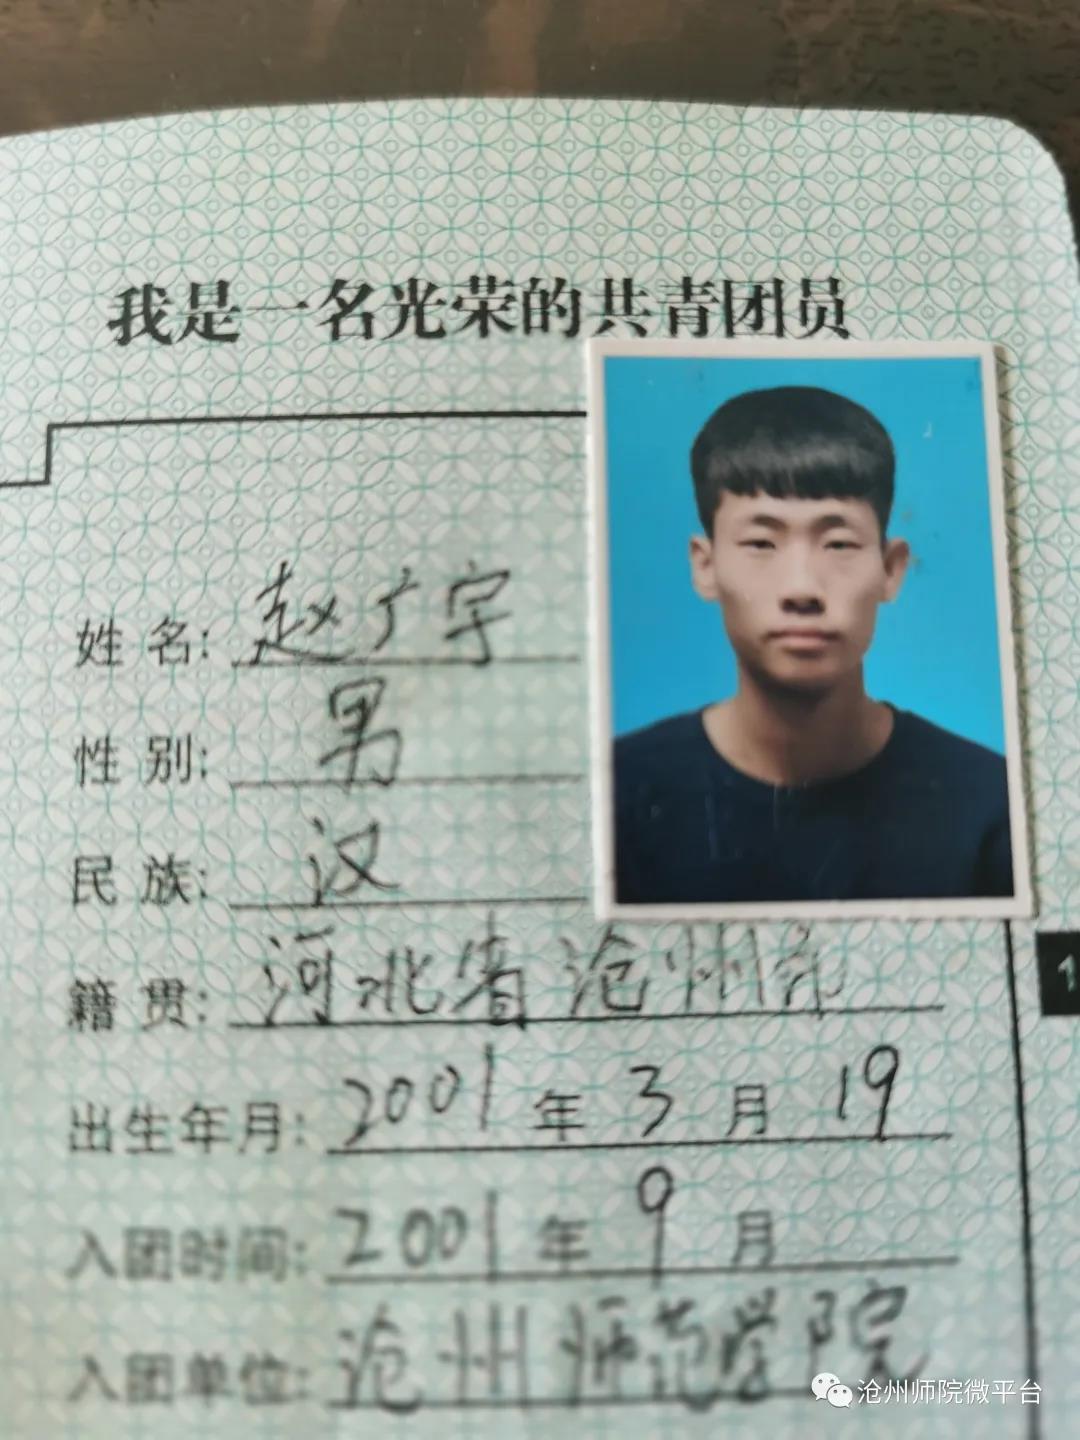 我是一名光荣的共青团员
姓 名: 赵广宇
性 别: 男
民 族: 汉
籍 贯: 河北省沧州市
1
出生年月: 2001 年 3 月 19
入团时间: 2001 年 9 月
入团单位: 沧州师范学院
沧州师院微平台